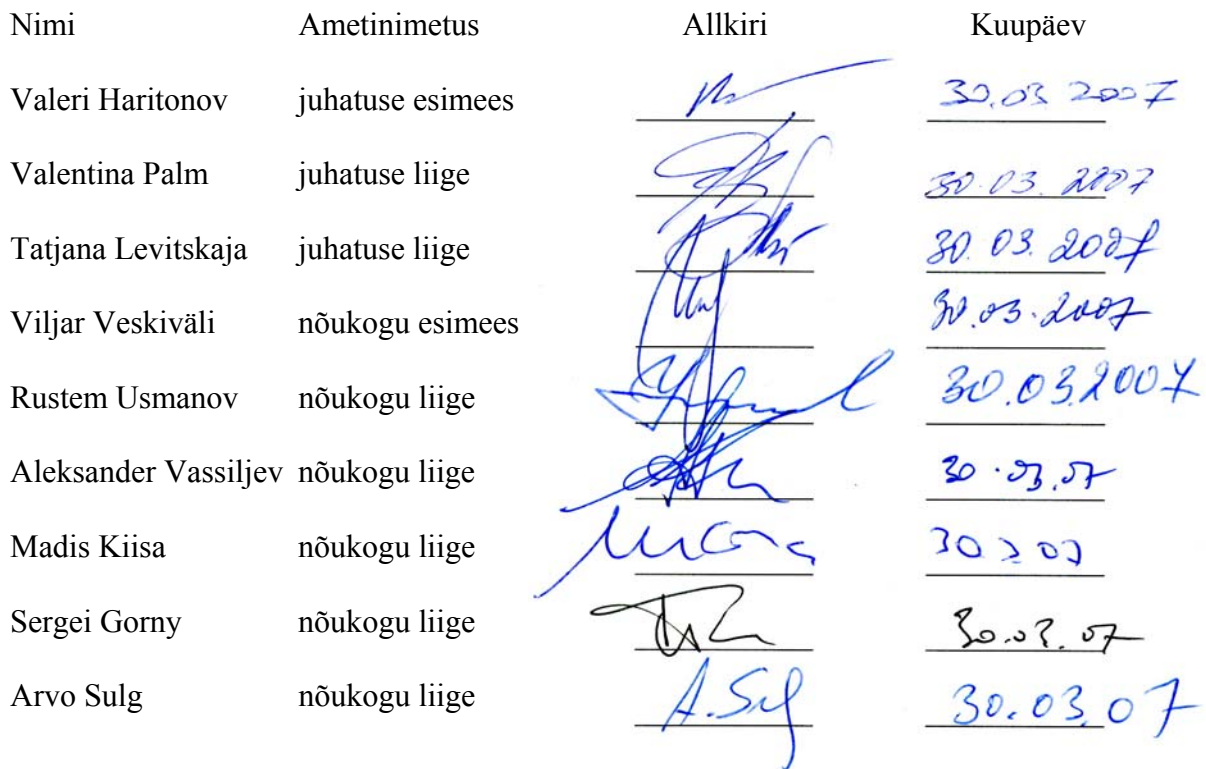 Nimi Ametinimetus Allkiri Kuupäev
Valeri Haritonov juhatuse esimees 30.03 2007
Valentina Palm juhatuse liige 30.03.2007
Tatjana Levitskaja juhatuse liige 30.03.2007
Viljar Veskiväli nõukogu esimees 30.03.2007
Rustem Usmanov nõukogu liige 30.03.2007
Aleksander Vassiljev nõukogu liige 30.03.07
Madis Kiisa nõukogu liige 30 3 07
Sergei Gorny nõukogu liige 30.03.07
Arvo Sulg nõukogu liige A. Sulg 30.03.07